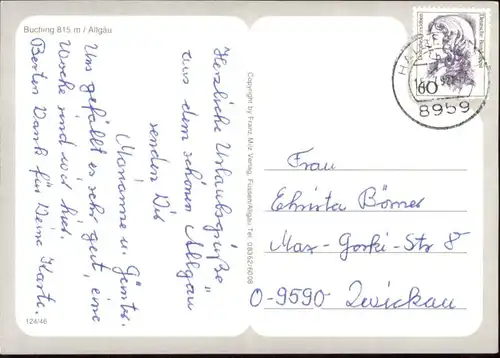 Buching 815 m / Allgäu
Herzliche Urlaubsgrüße
aus dem schönen Allgäu
senden Dir
Marianne u. Günter.
Uns gefällt es sehr gut, eine
Woche sind wir hier.
Besten Dank für Deine Karte.
124/46
Copyright by Franz Milz Verlag, Füssen/Allgäu Tel. 08362/6208
Deutsche Bundespost
60
8959
Frau
Christa Börner
Max-Gorki-Str 8
O-9590 Zwickau